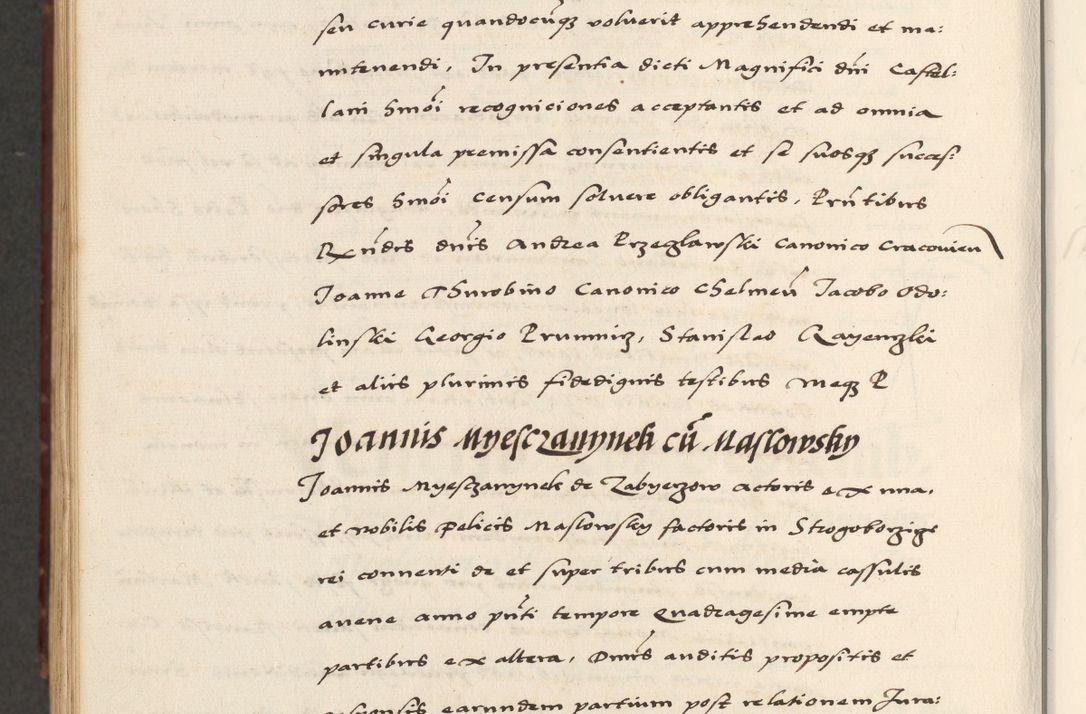 seu curie quandocūqꝫ voluerit apprehendendi et ma:
nutenendi. In presentia dicti Magnifici dn̄i Castel:
lani hmōi recogniciones acceptantis et ad omnia
et singula premissa consentientis et se suosqꝫ succes:
sores hmōi censum solvere obligantis. Prn̄tibus
Rx̄ndis dn̄is Andrea Przeglawski canonico Cracovien̄
Joanne Thurobino Canonico Chelmen̄ Jacobo Odo:
linski Georgio Prumnicz, Stanislao Rayenczki
et aliis plurimis fidedignis testibus Meqꝫ P
Joannis Myesczanynek cū Maslowsky
Joannis Myesczanynek de Zabyerzow actoris ex una.
et Nobilis Felicis Maslowsky factoris in Strogoborzice
rei conventi de et super tribus cum media cassulis
avene anno pn̄ti tempore Quadragesime empte
partibus ex altera, Dn̄us auditis propositis et
responsis earundem partium post relationem Jura: